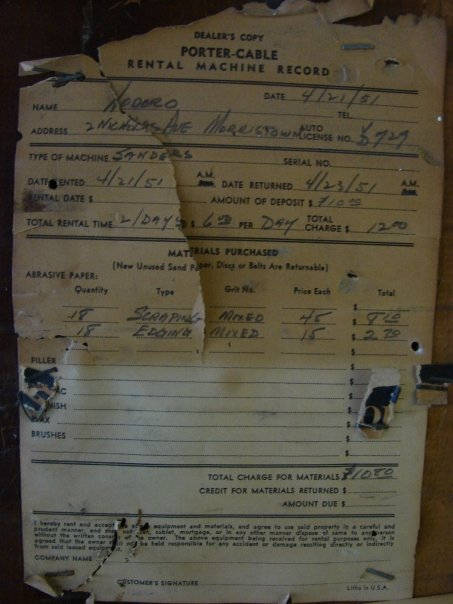 DEALER'S COPY
PORTER-CABLE
RENTAL MACHINE RECORD
DATE 4/21/51
NAME KODORO TEL.
ADDRESS 2 NICHOLAS AVE MORRISTOWN AUTO LICENSE NO.
TYPE OF MACHINE SANDERS SERIAL NO.
DATE RENTED 4/21/51 A.M. DATE RETURNED 4/23/51 A.M.
RENTAL DATE $ AMOUNT OF DEPOSIT $ 10.00
TOTAL RENTAL TIME 2/DAYS @ $ 6.00 PER DAY TOTAL CHARGE $ 12.00
MATERIALS PURCHASED
(New Unused Sand Paper, Discs or Belts Are Returnable)
ABRASIVE PAPER:
Quantity Type Grit No. Price Each Total
18 SCRAPING MIXED 45 $ 8.10
18 EDGING MIXED 15 $ 2.70
$
FILLER $
$
AC $
NISH $
WAX $
BRUSHES $
$
TOTAL CHARGE FOR MATERIALS $ 10.80
CREDIT FOR MATERIALS RETURNED $
AMOUNT DUE $
I hereby rent and accept equipment and materials, and agree to use said property in a careful and
prudent manner, and shall not sublet, mortgage, or in any other manner dispose of same to any person
without the written consent of the owner. The above equipment being received for rental purposes only, it is
agreed that the owner shall not be held responsible for any accident or damage resulting directly or indirectly
from said leased equipment.
COMPANY NAME
CUSTOMER'S SIGNATURE
Litho in U.S.A.